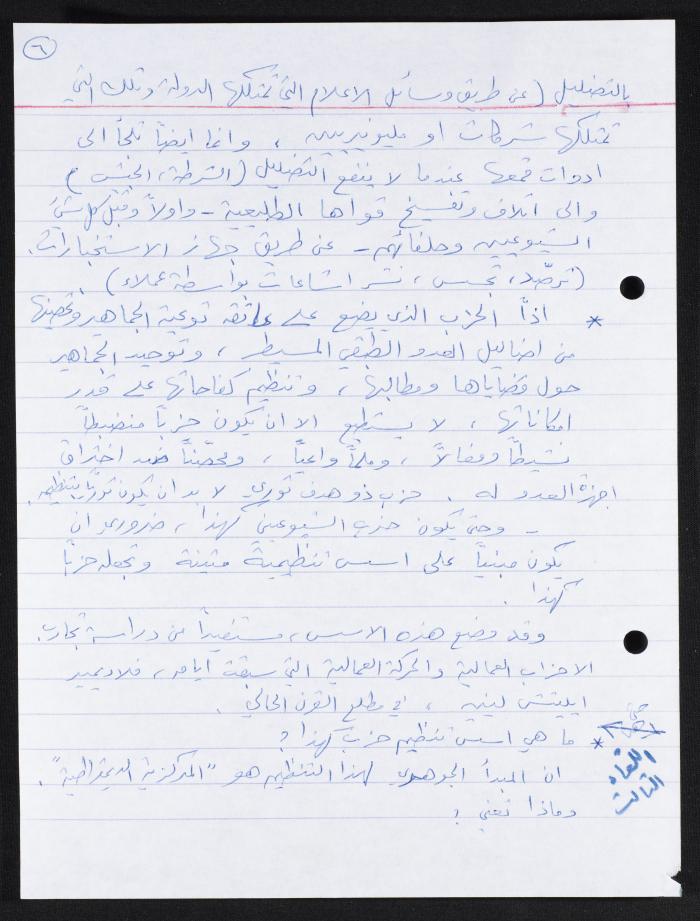 ٦
بالتضليل (عن طريق وسائل الاعلام التي تمتلكها الدولة وتلك التي
تمتلكها شركات او مليونيريين ، وانما ايضاً تلجأ الى
ادوات قمعها عندما لا ينفع التضليل (الشرطة، الجيش)
والى اتلاف وتفسيخ قواها الطليعية - واولاً وقبل كل شيء
الشيوعيين وحلفائهم - عن طريق جهاز الاستخبارات.
(ترصّد، تجسس، نشر اشاعات بواسطة عملاء).
* اذاً الحزب الذي يضع على عاتقه توعية الجماهير وتحصينها
من اضاليل العدو الطبقي المسيطر ، وتوحيد الجماهير
حول قضاياها ومطالبها ، وتنظيم كفاحاتها على قدر
امكاناتها ، لا يستطيع الا ان يكون حزباً منضبطاً
نشيطاً وفعالاً ، وملمّاً واعياً ، ومحصّناً ضد اختراق
اجهزة العدو له . حزب ذو هدف ثوري لا بد ان يكون ثورياً بتنظيمه.
- وحتى يكون حزب الشيوعيين كهذا ، ضروري ان
يكون مبنياً على اسس تنظيمية متينة وتجعله حزباً
كهذا .
وقد وضع هذه الاسس ، مستفيداً من دراسة تجارب
الاحزاب العمالية والحركة العمالية التي سبقت ايامه ، فلاديمير
ايليتش لينين ، في مطلع القرن الحالي .
* ما هي اسس تنظيم حزب كهذا ؟
حتى
اللقاء
الثالث
ان المبدأ الجوهري لهذا التنظيم هو "المركزية الديمقراطية".
وماذا تعني ؟